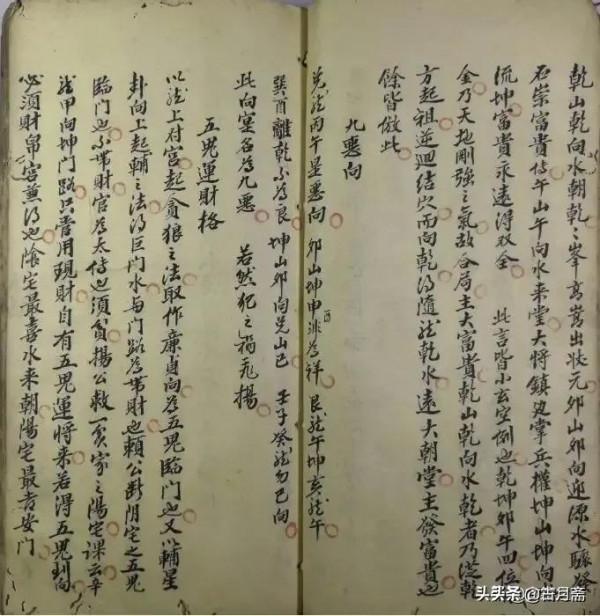 乾山乾向水朝乾乾峯高嵩出狀元卯山卯向迎源水驟發
石崇富貴傳午山午向水来堂大將鎮边掌兵權坤山坤向
流坤富貴永遠得双全 此言皆小玄空例也乾坤卯午四位
金乃天地剛強之氣故合局主大富貴乾山乾向水乾者乃從乾
方起祖逆迴結穴而向乾得隨龙乾水遠大朝堂主發富貴也
餘皆倣此
九惡向
兑龙丙午星惡向 卯山坤申酉非為祥 艮龙午坤亥龙午
巽酉離乾不為良 坤山卯向兑山巳 壬子癸龙勿巳向
此向室名為九惡 若然犯之禍飛揚
五鬼運財格
以龙上府宫起貪狼之法取作廉貞向為五鬼臨門也又以輔星
卦向上起輔之法得巨門水与門路為帶財也賴公断阴宅之五鬼
臨門也不帶財官為夭侍也須貧揚公救貧家之陽宅課云辛
龙甲向坤門路只青用現財自有五鬼運將来若得五鬼到向
必須財帛官兼得也陰宅最喜水来朝陽宅最青安門
头条@古月斋